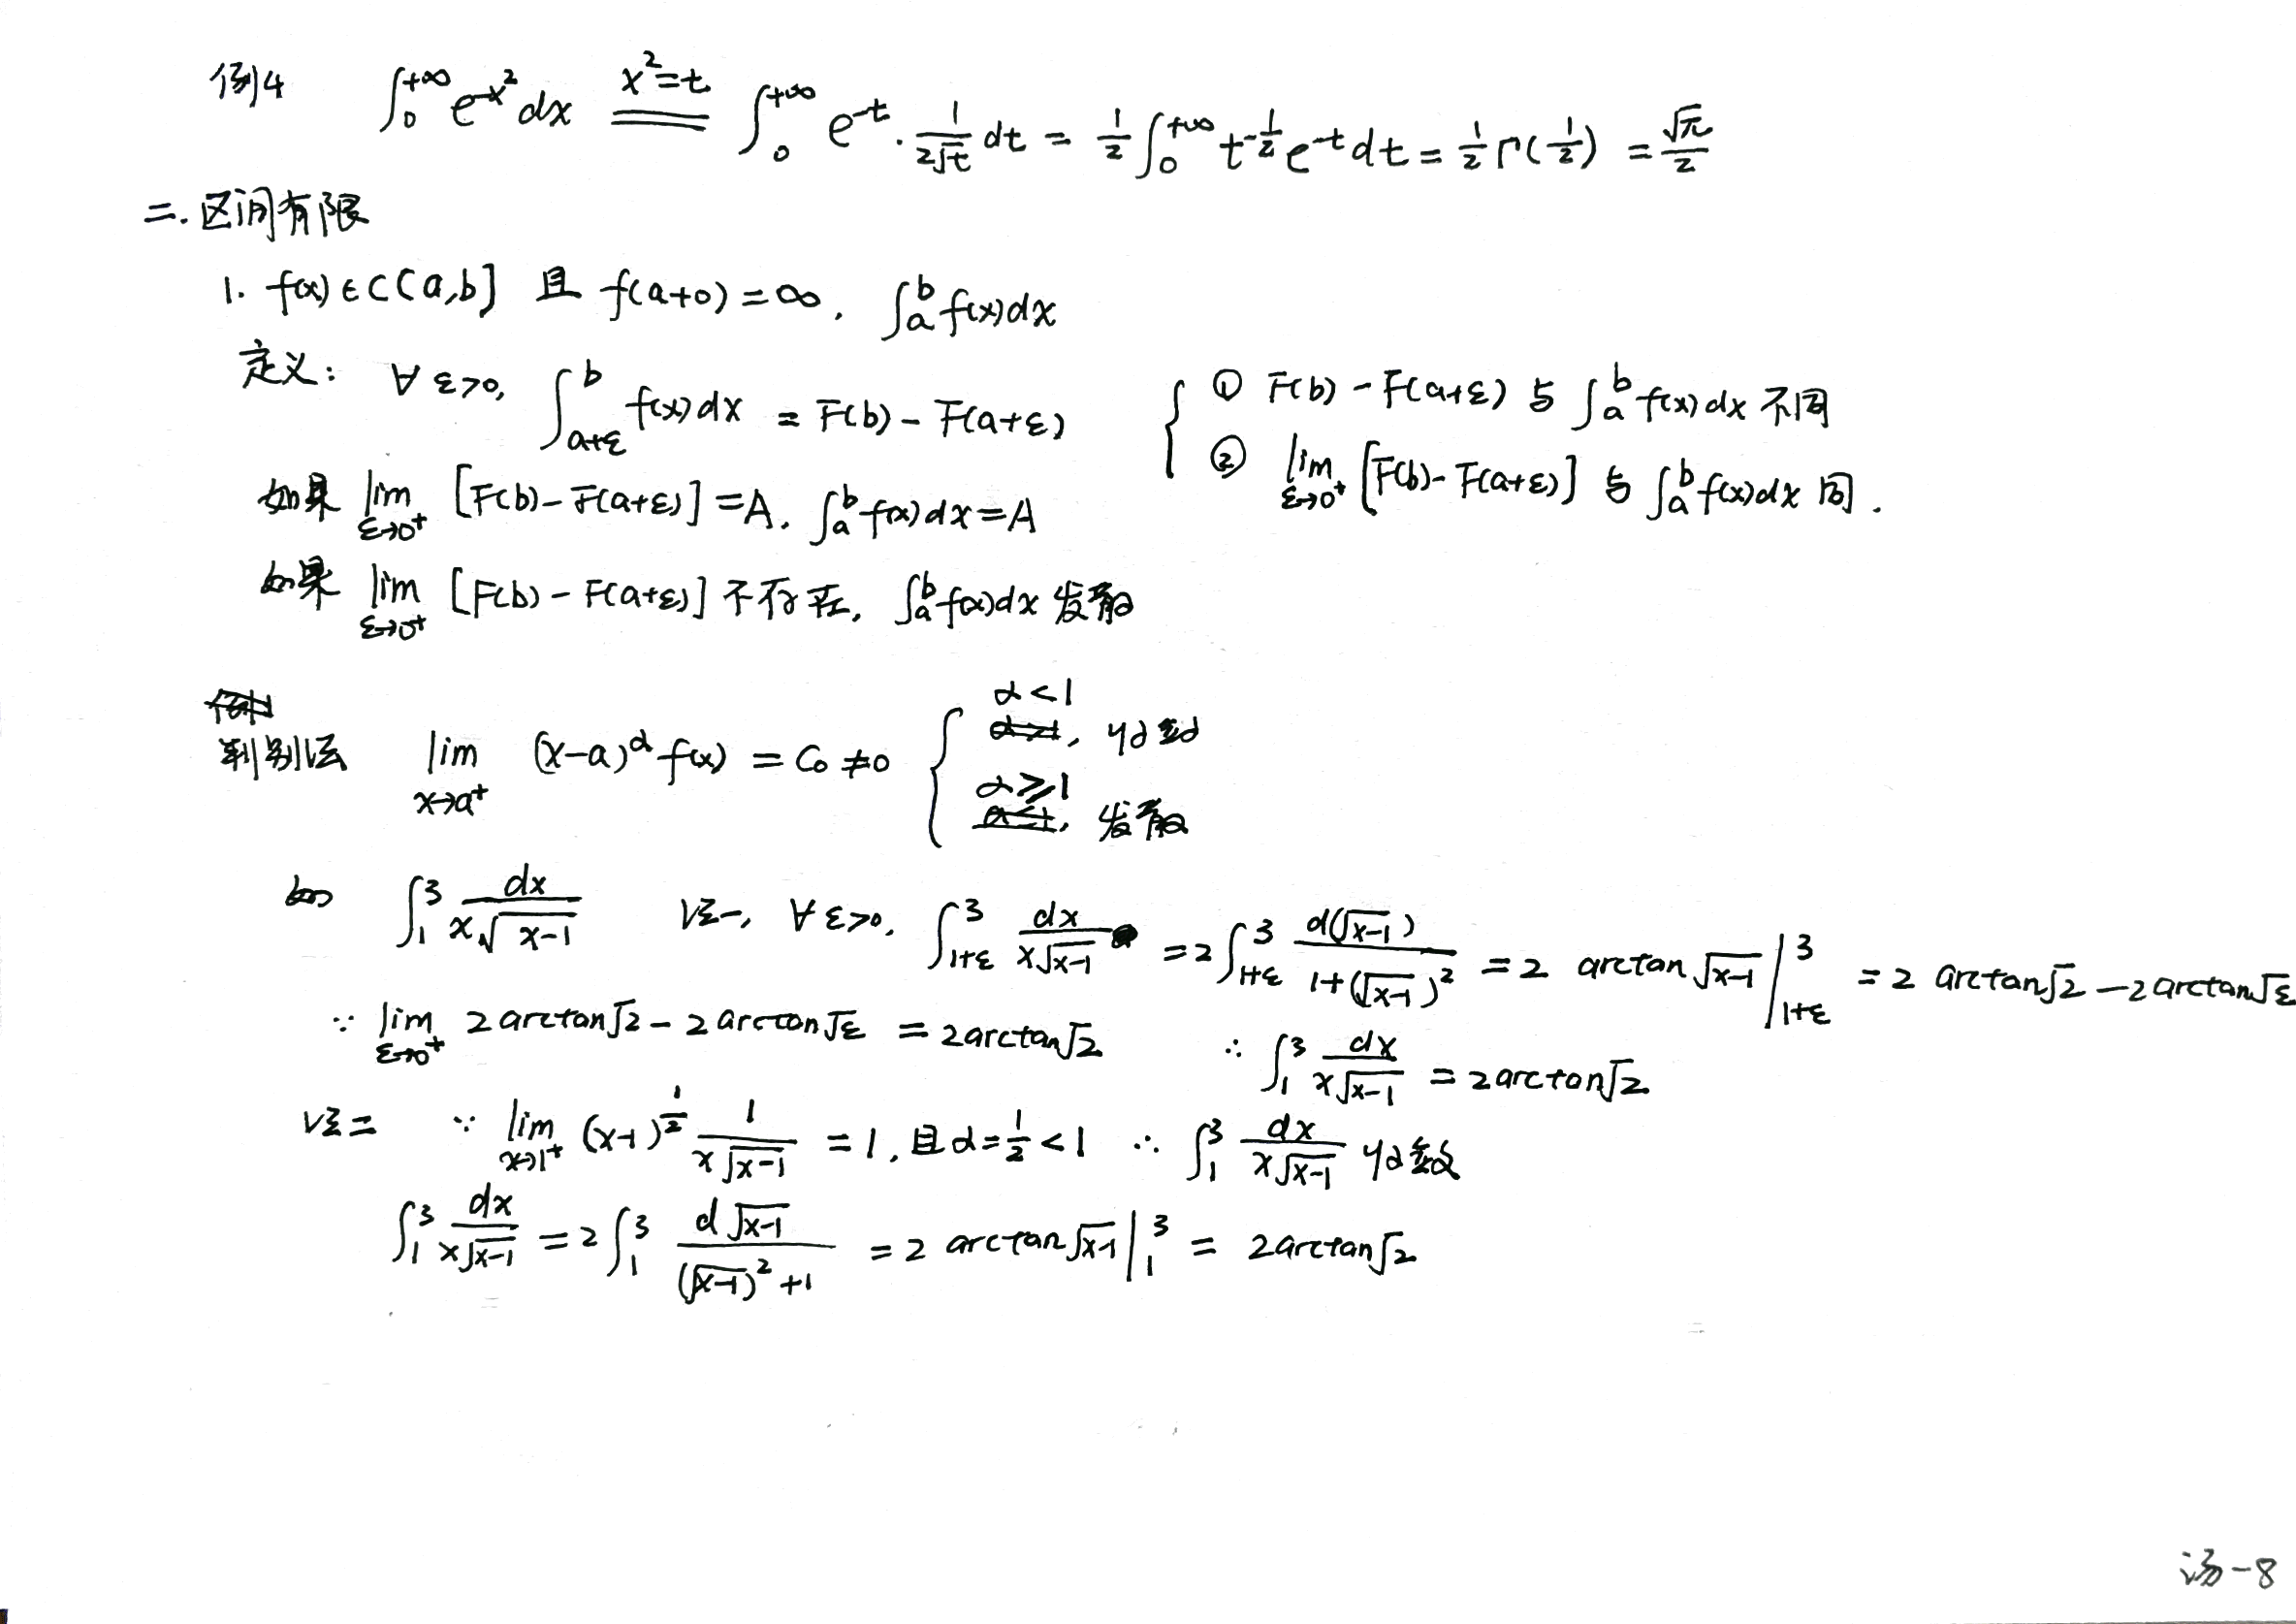 例4 ∫₀^{+∞} e^{-x²} dx \xlongequal{x²=t} ∫₀^{+∞} e^{-t}·\frac{1}{2√t} dt = \frac{1}{2}∫₀^{+∞} t^{-\frac{1}{2}} e^{-t} dt = \frac{1}{2}Γ(\frac{1}{2}) = \frac{√π}{2}
二. 区间有限
1. f(x)∈C(a,b] 且 f(a+0)=∞, ∫_a^b f(x)dx
定义: ∀ε>0, ∫_{a+ε}^b f(x)dx = F(b)-F(a+ε)
{ ① F(b)-F(a+ε) 与 ∫_a^b f(x)dx 不同
② lim_{ε→0⁺} [F(b)-F(a+ε)] 与 ∫_a^b f(x)dx 同.
如果 lim_{ε→0⁺} [F(b)-F(a+ε)]=A. ∫_a^b f(x)dx=A
如果 lim_{ε→0⁺} [F(b)-F(a+ε)] 不存在, ∫_a^b f(x)dx 发散
判别法 lim_{x→a⁺} (x-a)^α f(x) = C₀≠0 { α<1, 收敛
α≥1, 发散
如 ∫₁³ \frac{dx}{x√(x-1)} 法一, ∀ε>0, ∫_{1+ε}^3 \frac{dx}{x√(x-1)} = 2∫_{1+ε}^3 \frac{d(√(x-1))}{1+(√(x-1))²} = 2 arctan√(x-1) |_{1+ε}^3 = 2 arctan√2 - 2arctan√ε
∵ lim_{ε→0⁺} 2arctan√2 - 2arctan√ε = 2arctan√2 ∴ ∫₁³ \frac{dx}{x√(x-1)} = 2arctan√2
法二 ∵ lim_{x→1⁺} (x-1)^{\frac{1}{2}} \frac{1}{x√(x-1)} = 1, 且α=\frac{1}{2}<1 ∴ ∫₁³ \frac{dx}{x√(x-1)} 收敛
∫₁³ \frac{dx}{x√(x-1)} = 2∫₁³ \frac{d√(x-1)}{(√(x-1))²+1} = 2 arctan√(x-1) |₁³ = 2arctan√2
汤-8